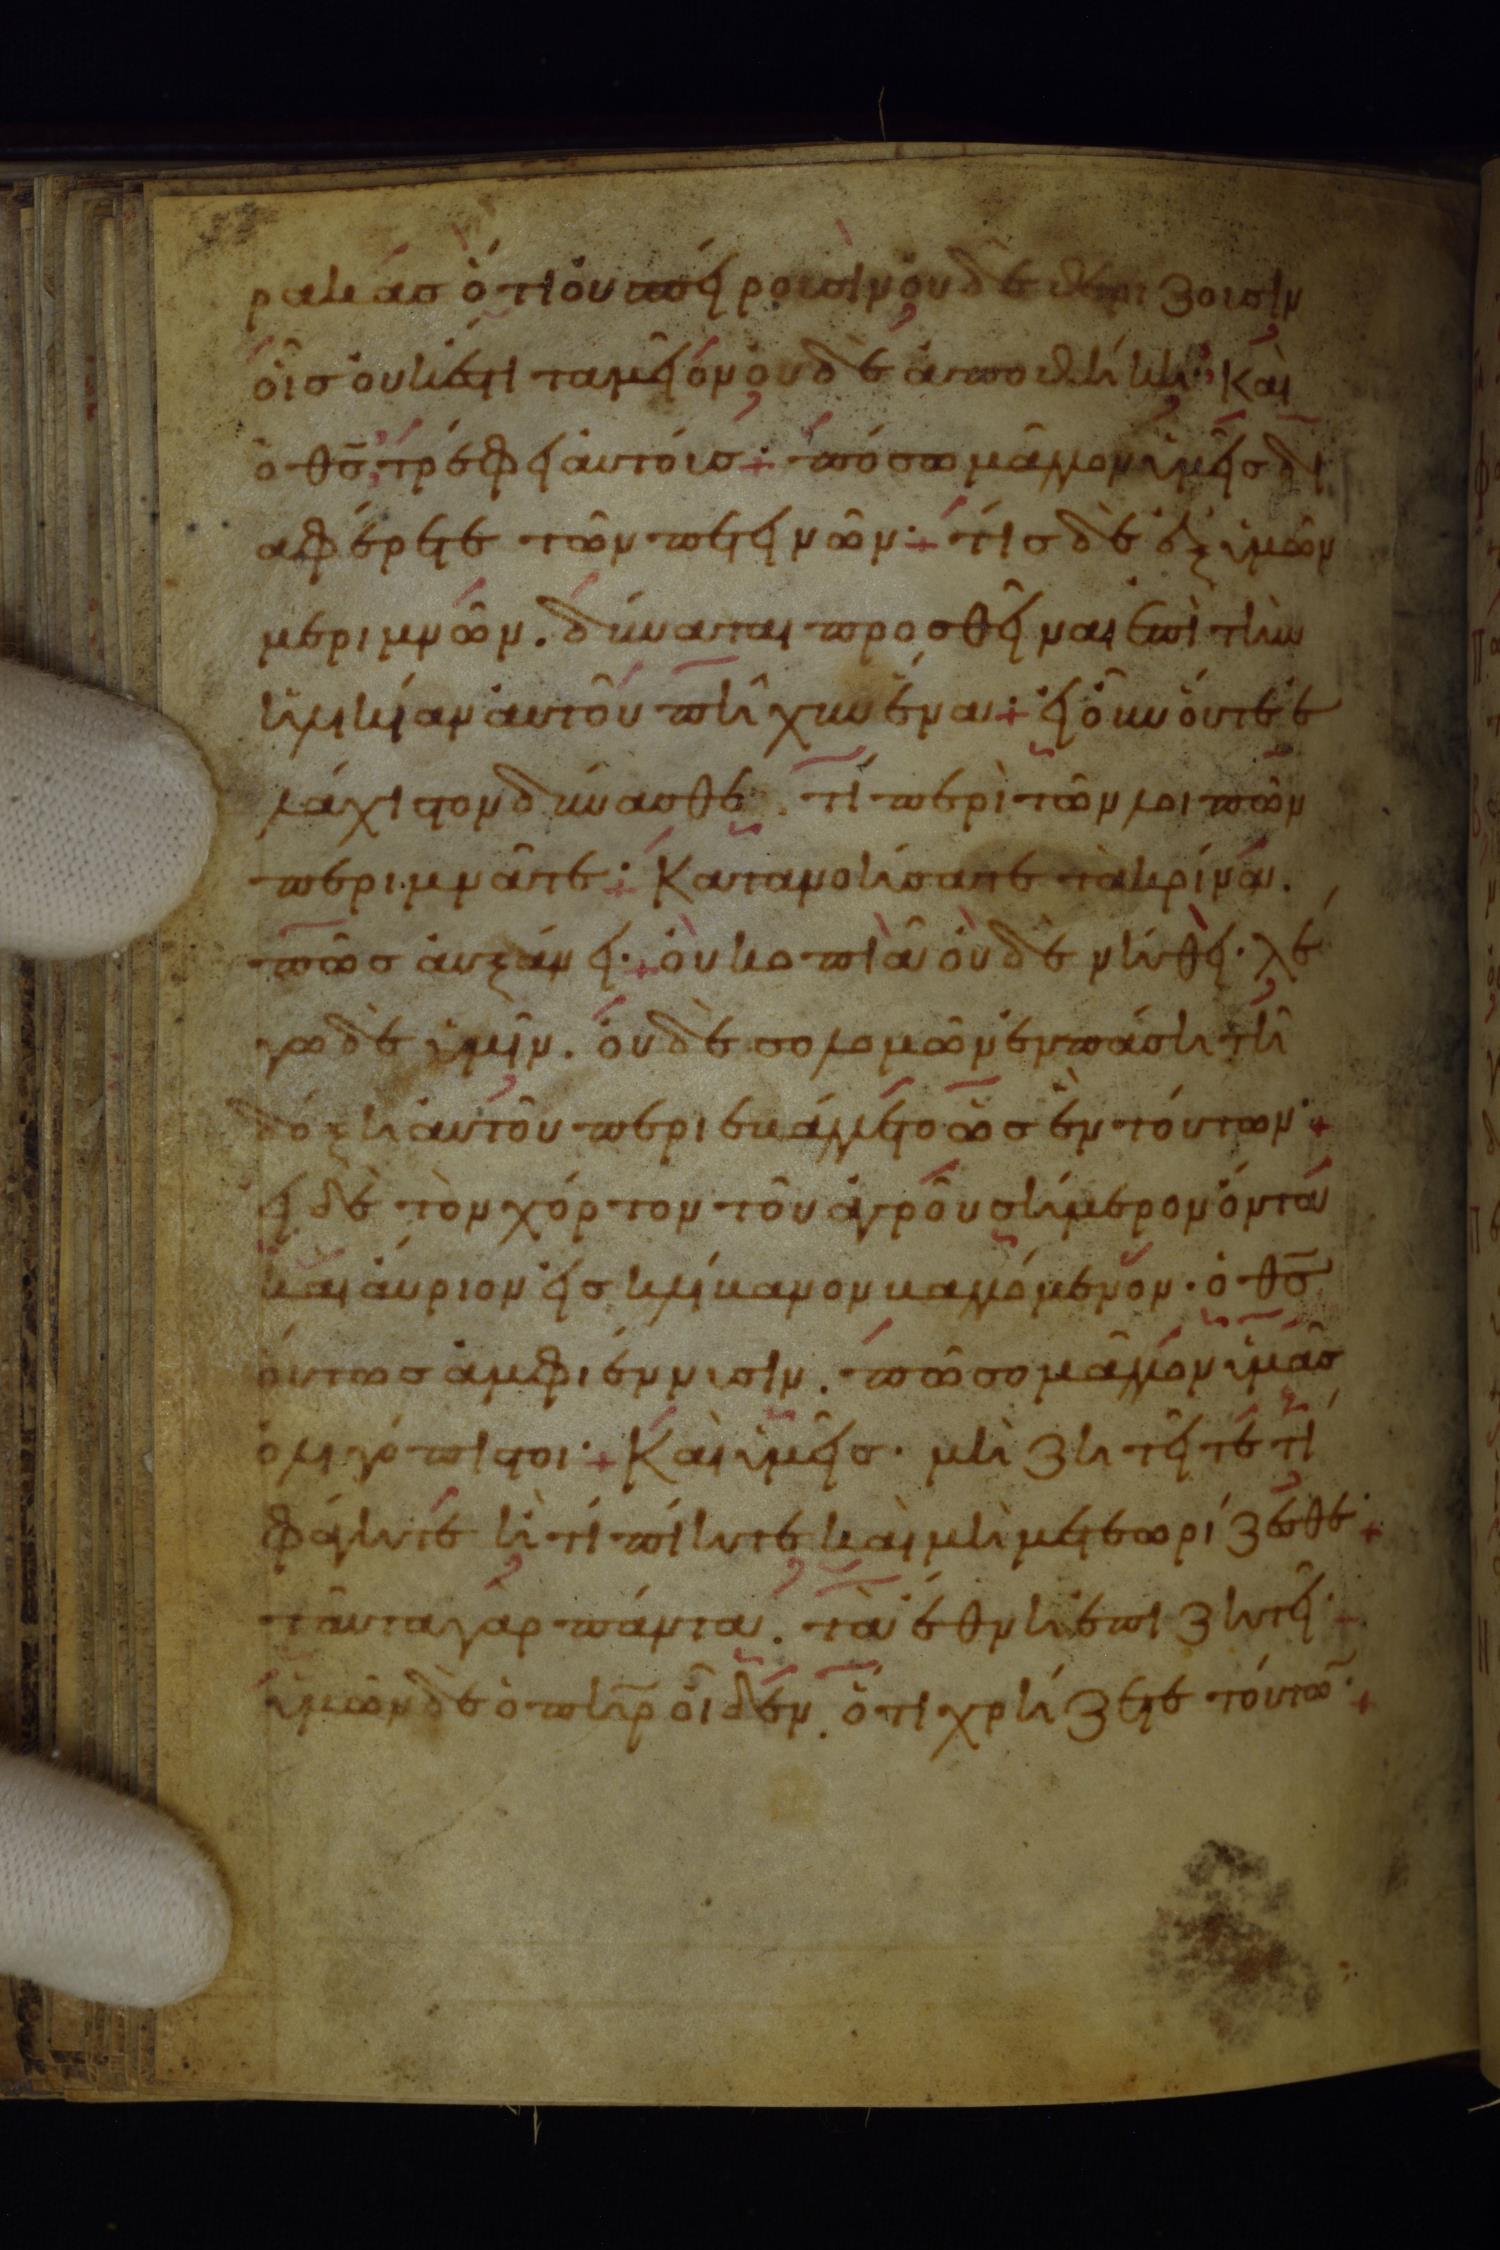 ρακάσ ὅτι ὀυ σπείροισιν ὀυδὲ θερίζοισιν
ὁῖσ ουκ ἔστι ταμεῖόν ὀυδὲ ἀποθήκη· και
ὁ θσ̅ τρέφει ἀυτόισ· + πόσω μᾶλλον ἰμεῖσ δι
αφέρετε τῶν πετεινῶν· + τίσ δὲ ἐξ ἰμῶν
μεριμνῶν. δύναται προσθεῖναι ἐπὶ τὴν
ἡλικίαν ἀυτοῦ πῆχυν ἕναν· + εἰ ὀυν όυτε ἐ
λάχιστον δύνασθε. τί περὶ τῶν λοιπῶν
περιμνᾶτε· + Κατανοήσατε τὰ κρίνα.
πῶσ ἀυξάνει· + ὀυ κοπιᾶ ὀυδὲ νήθει· λέ
γω δὲ ἰμῖν. ὀυδὲ σολομῶν ἐν πάσι τῆ
δόξη ἀυτοῦ περιεκάλλετο ὡσ ἐν τόυτων· +
εἰ δὲ τὸν χόρτον τοῦ ἀγροῦ σήμερον όντα
και άυριον εἰσ κλίκανον καλλόμενον· ὁ θσ̅
όυτωσ ἀμφιέννισιν. πῶσο μᾶλλον ἰμᾶσ
ὀλιγόπιστοι· + Καὶ ἰμεῖσ· μὴ ζητεῖτε τί
φάγητε ἢ τί πίητε καὶ μὴ μετεωρίζεσθε· +
τᾶυτα γὰρ πάντα. τὰ ἔθνη ἐπιζητεῖ· +
ἰμῶν δὲ ὁ πηρ̅ ὀῖδεν. ὅτι χρήζετε τόυτω̅· +